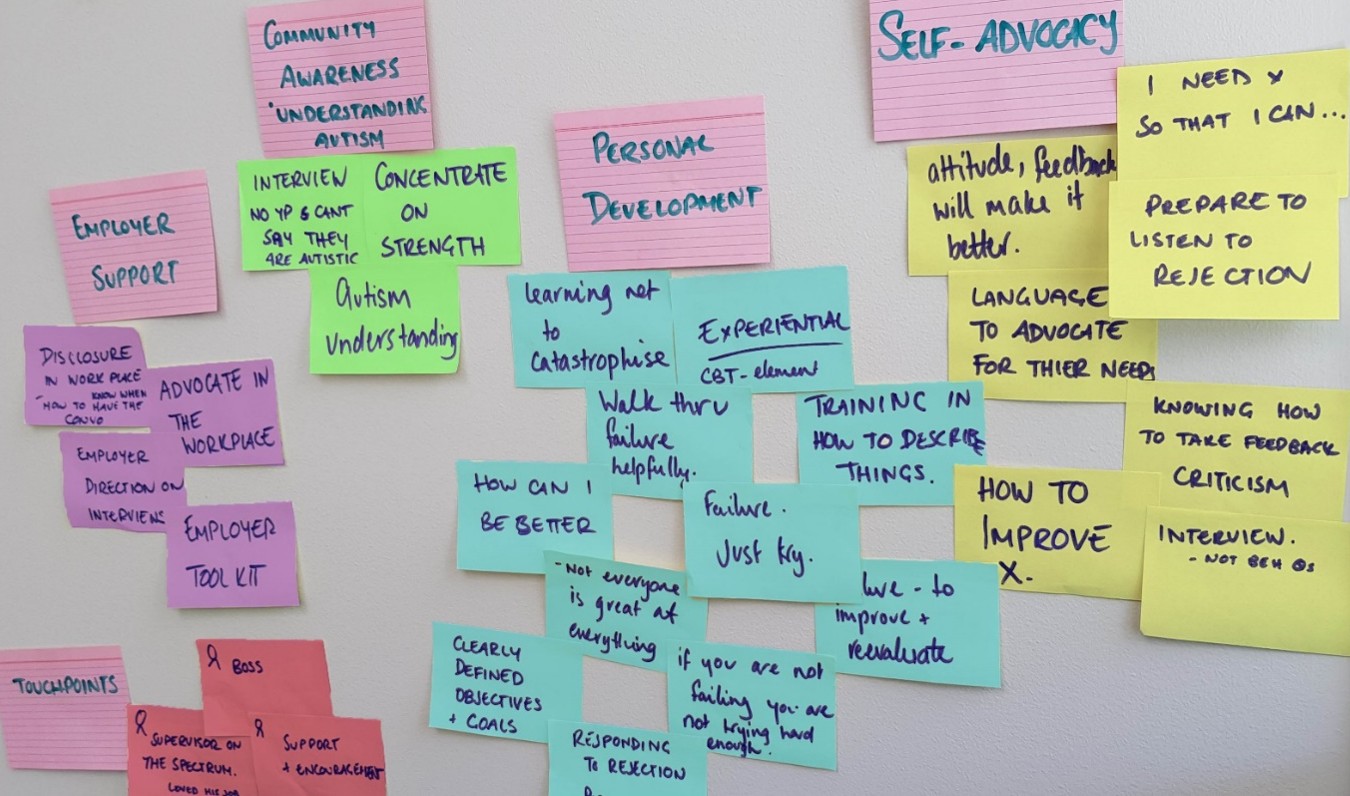 COMMUNITY
AWARENESS
'UNDERSTANDING
AUTISM
INTERVIEW
NO YP & CANT
SAY THEY
ARE AUTISTIC
CONCENTRATE
ON
STRENGTH
Autism
understanding
EMPLOYER
SUPPORT
DISCLOSURE
IN WORK PLACE
KNOW WHEN
HOW TO HAVE THE
CONVO
ADVOCATE IN
THE
WORKPLACE
EMPLOYER
DIRECTION ON
INTERVIEWS
EMPLOYER
TOOL KIT
TOUCHPOINTS
BOSS
SUPERVISOR ON
THE SPECTRUM.
LOVED HIS JOB
SUPPORT
+ ENCOURAGEMENT
PERSONAL
DEVELOPMENT
learning not
to
catastrophise
EXPERIENTIAL
CBT-element
Walk thru
failure
helpfully.
TRAINING IN
HOW TO DESCRIBE
THINGS.
HOW CAN I
BE BETTER
Failure.
Just try.
-Not everyone
is great at
everything
- to
improve +
reevaluate
CLEARLY
DEFINED
OBJECTIVES
+ GOALS
if you are not
failing you are
not trying hard
enough.
RESPONDING
TO REJECTION
SELF-ADVOCACY
I NEED X
SO THAT I CAN...
attitude, feedback
will make it
better.
PREPARE TO
LISTEN TO
REJECTION
LANGUAGE
TO ADVOCATE
FOR THIER NEEDS
KNOWING HOW
TO TAKE FEEDBACK
CRITICISM
HOW TO
IMPROVE
X.
INTERVIEW.
- NOT BEH QS